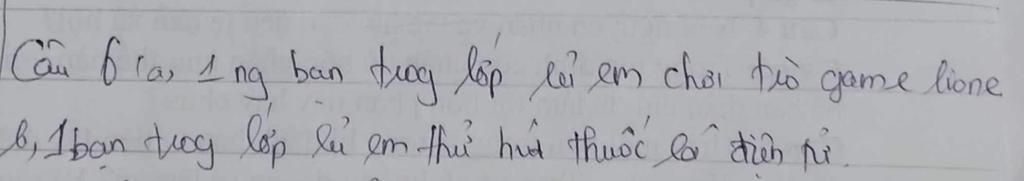 Câu 6: a, 1 ng bạn trog lớp rủ em chơi trò game lione
b, 1 bạn trog lớp rủ em thử hút thuốc lá điện tử.